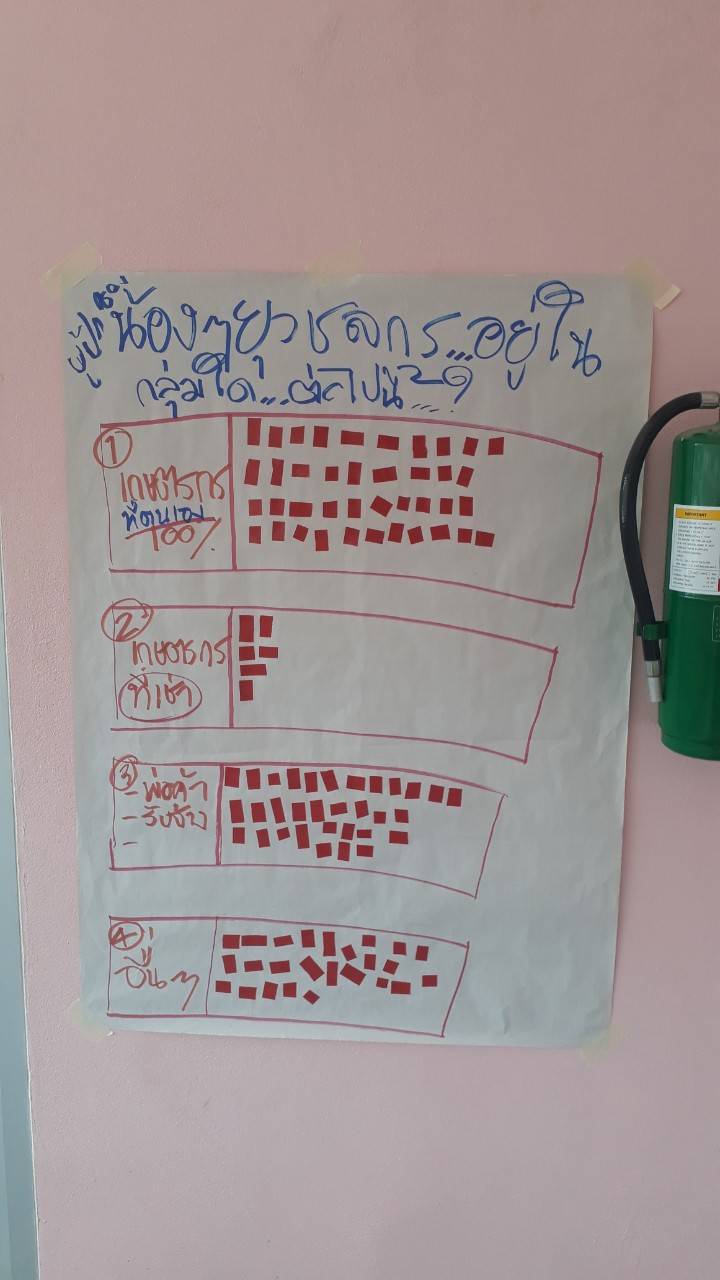 ผู้ปกครอง
น้องๆยุวชลกร...อยู่ใน
กลุ่มใด...ต่อไปนี้...?
①
เกษตรกร
ที่ตนเอง
100%
②
เกษตรกร
ที่เช่า
③
- พ่อค้า
- รับจ้าง
-
④
อื่นๆ
IMPORTANT